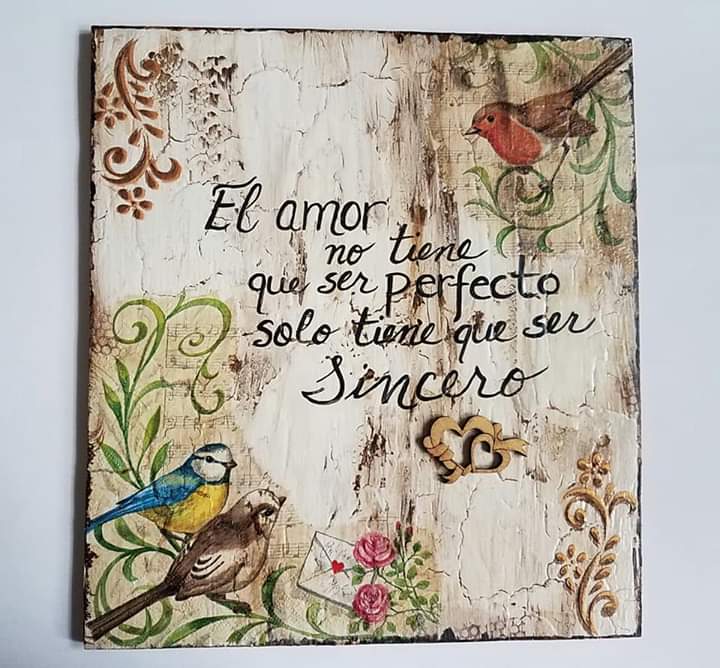 El amor
no tiene
que ser perfecto
solo tiene que ser
sincero